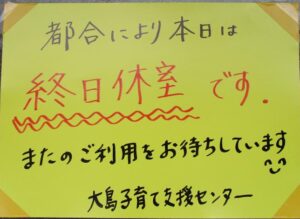 都合により本日は
終日休室です.
またのご利用をお待ちしています
大島子育て支援センター